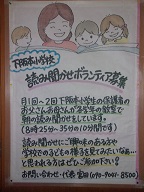 下阪本小学校
読み聞かせボランティア募集
月1回～2回 下阪本小学生の保護者の
お父さんお母さんが各学年の教室で
朝の読み聞かせをしています。
(8時25分～35分の10分間です)
読み聞かせにご興味のある方や
学校での子どもの様子を見てみたいなぁ…
と思われる方はぜひご参加下さい!
お問い合わせ・代表